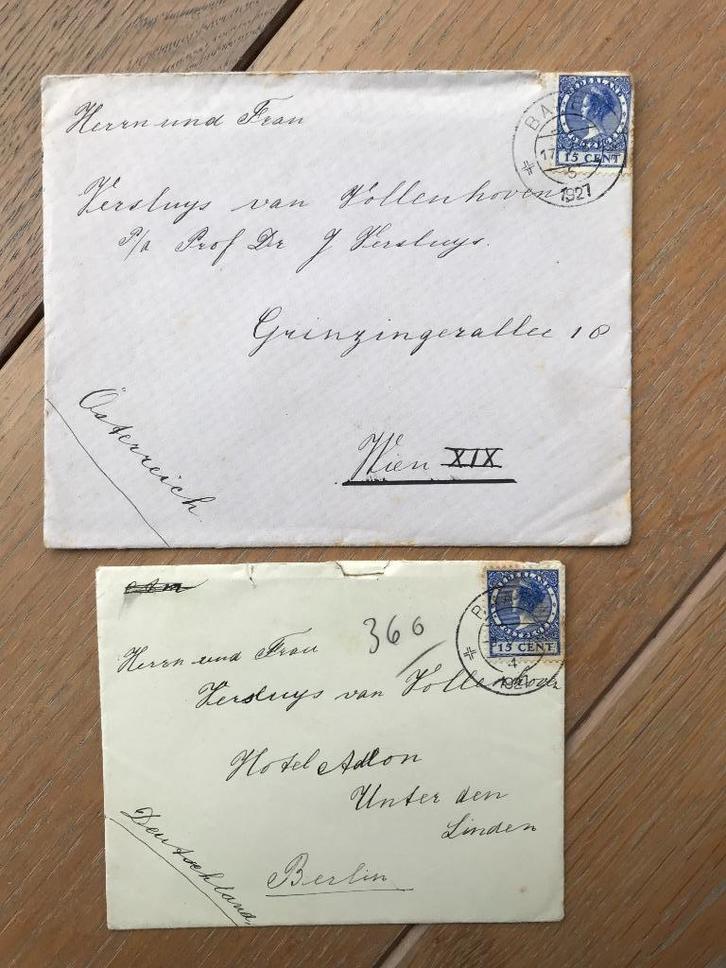 Herrn und Frau
NEDERLAND
BA
17
15 CENT
5
1927
Versluys van Vollenhoven
P/a Prof Dr J Versluys.
Grinzingerallee 18
Österreich
Wien XIX
NEDERLAND
BAA
15 CENT
4
1927
366
Herrn und Frau
Versluys van Vollenhoven
Hotel Adlon
Unter den
Linden
Deutschland
Berlin